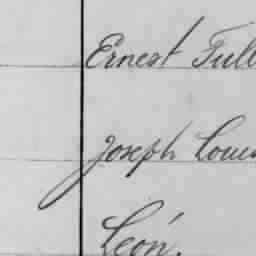 Ernest Full
Joseph Loui
León.